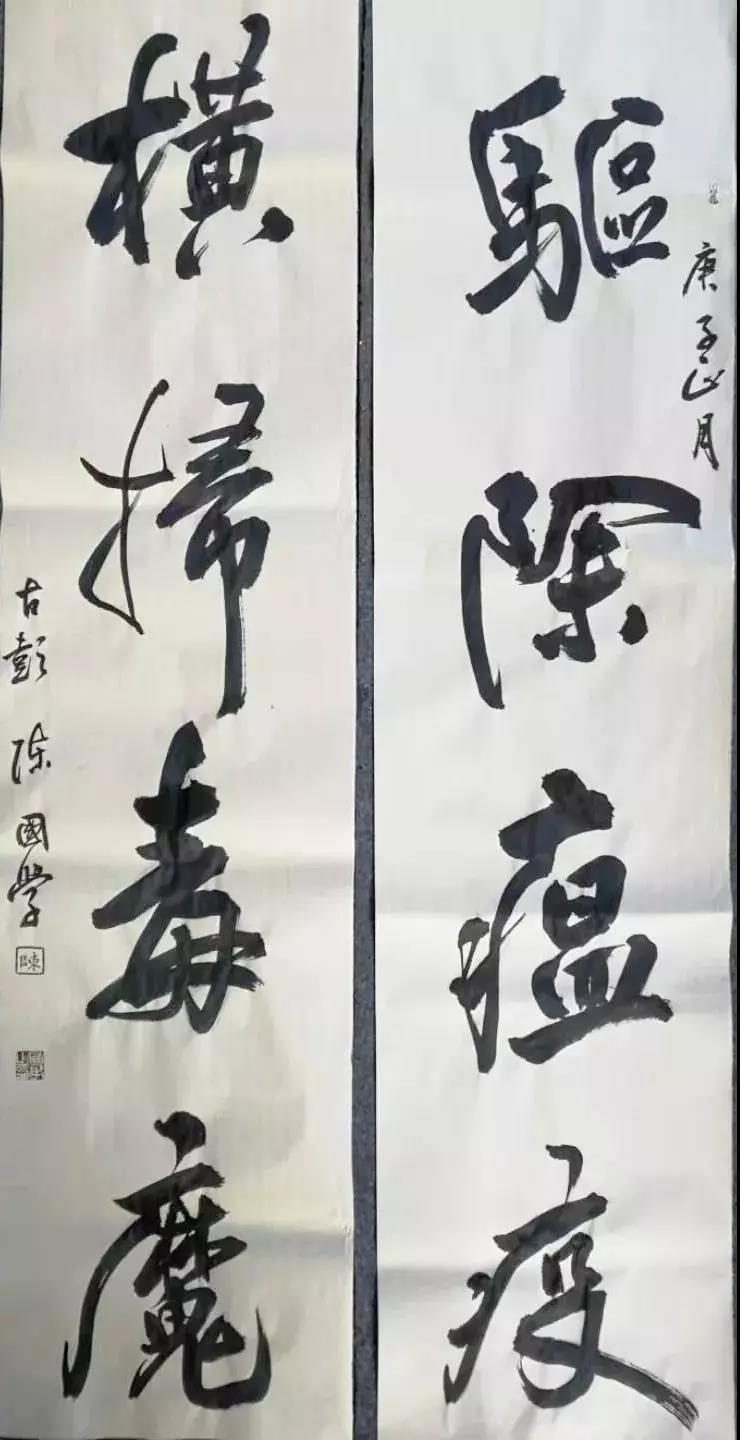 庚子正月
驅除瘟疫
橫掃毒魔
古彭 陈國學
陳